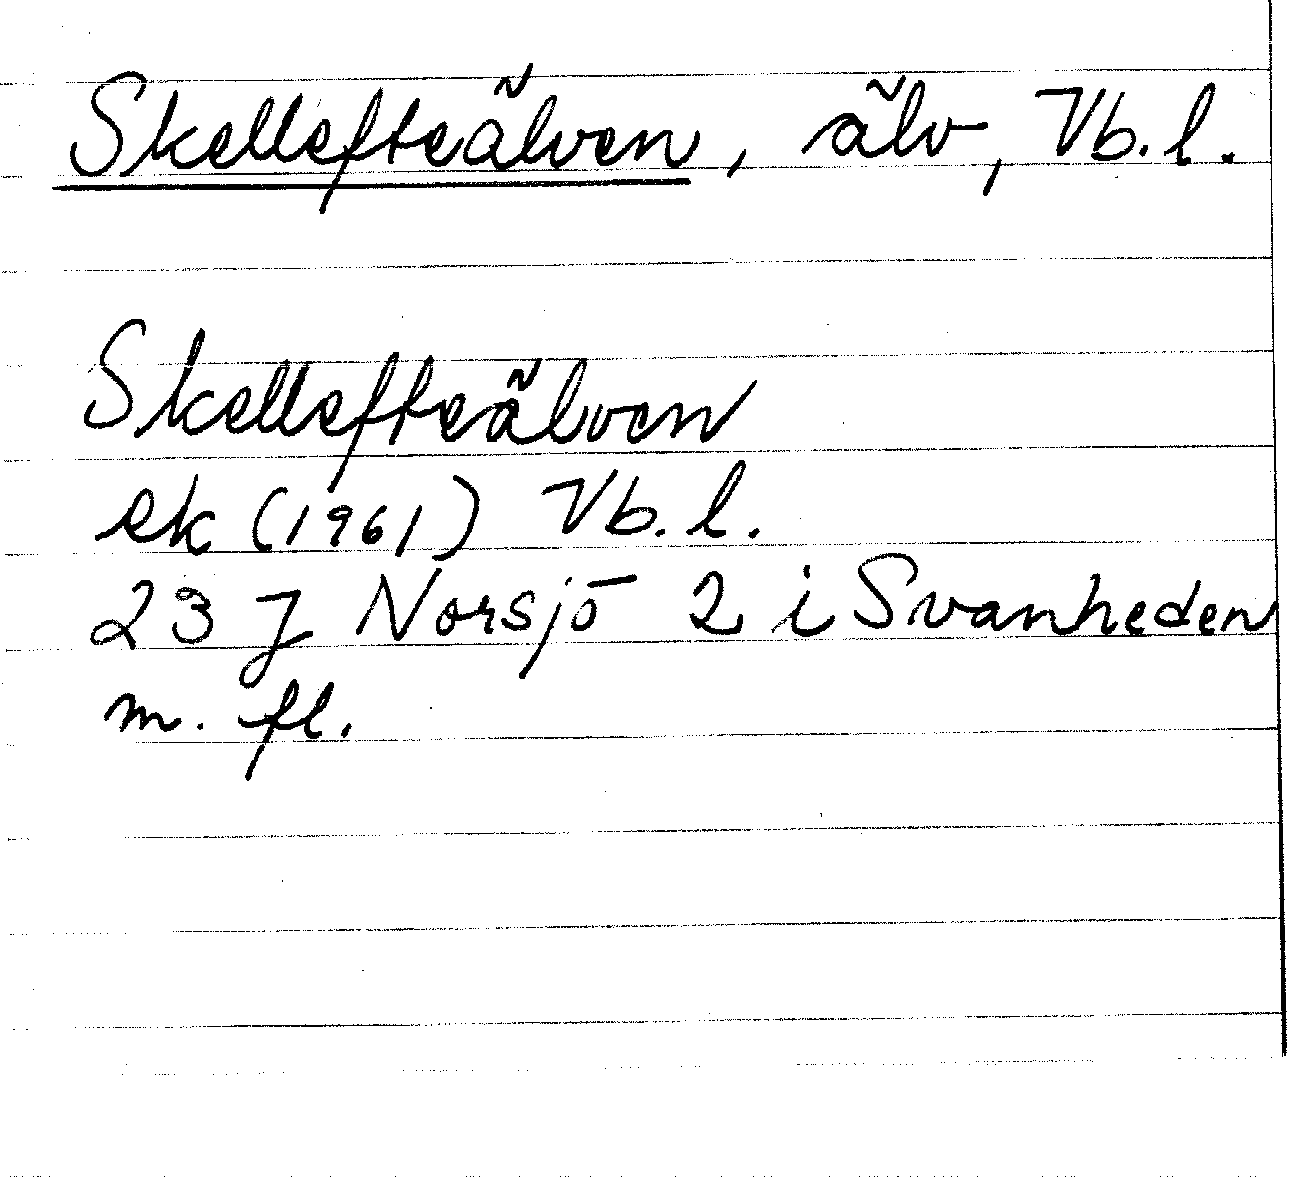 Skellefteälven, älv, Vb. l.
Skellefteälven
ek (1961) Vb. l.
23 J Norsjö 2 i Svanheden
m. fl.